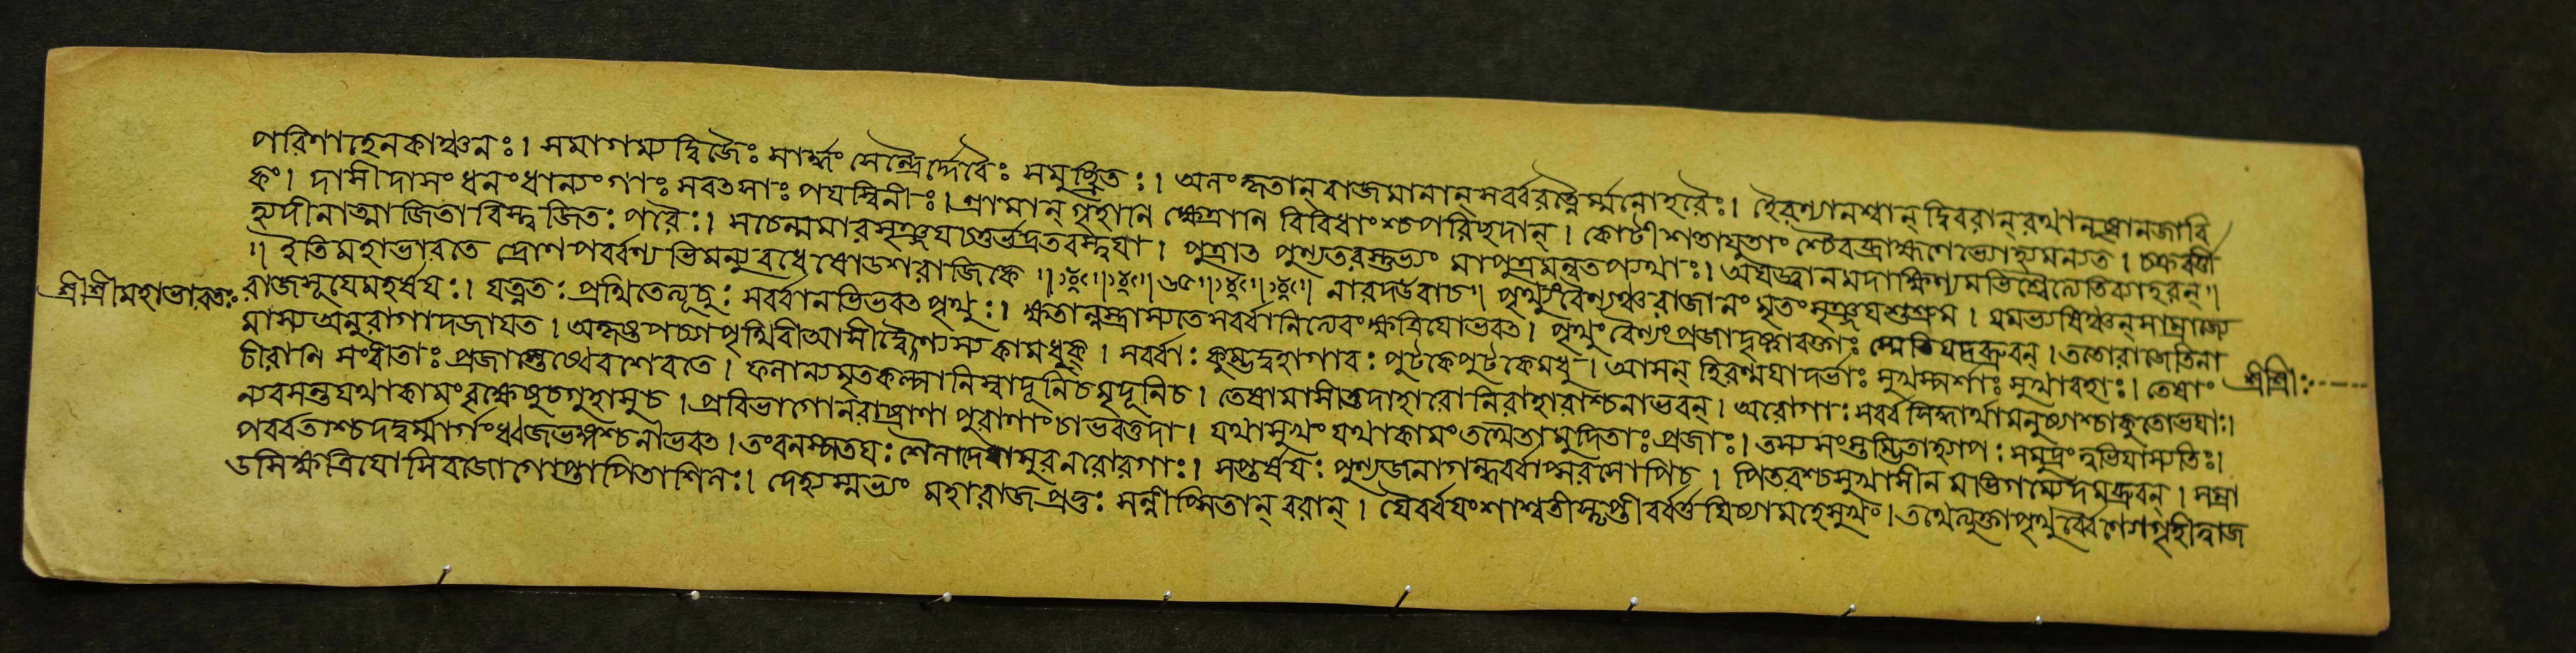 পরিণাহেনকাঞ্চনঃ। সমাগম্যদ্বিজৈঃ সার্দ্ধং সেন্দ্রৈর্দ্দেবৈঃ সমুচ্ছ্রিতঃ। অলংকৃতান্‌রাজমানান্‌সর্ব্বরত্নৈর্ম্মনোহরৈঃ। হৈরণ্যানশ্বান্‌ দ্বিরদান্‌ রথানুষ্ট্রানজাবি
কং। দাসীদাসং ধনংধান্যং গাঃ সবৎসাঃ পযস্বিনীঃ। গ্রামান্‌ গৃহানি ক্ষেত্রানি বিবিধাংশ্চপরিছদান্‌। কোটীশতাযুতাংশ্চৈবব্রাহ্মণেভ্যোহ্যমন্যত। চক্রবর্ত্তী
হ্যদীনাত্মাজিতারিস্ত্বজিতঃ পরৈঃ। সচেন্মমারসৃঞ্জযচতুর্ভদ্রতরস্ত্বযা। পুত্রাৎ পুণ্যতরস্তুভ্যং মাপুত্রমনুতপ্যথাঃ। অযজ্বানমদাক্ষিণ্যমভিশ্বৈত্যেতিব্যাহরন্‌॥
॥ ইতিমহাভারতে দ্রোণপর্ব্বণ্যভিমন্যুবধে ষোডশরাজিকে ॥ ॥ নারদউবাচ॥ পৃথুংবৈণ্যঞ্চরাজানং মৃতংসৃঞ্জযশুশ্রুম। যমভ্যষিঞ্চন্‌সাম্রাজ্যে
শ্রীশ্রীমহাভারতঃ
রাজসূযেমহর্ষযঃ। যত্নতঃ প্রথিতেত্যূচুঃ সর্ব্বানভিভবৎপৃথুঃ। ক্ষতান্নস্ত্রাস্যতেসর্ব্বানিত্যেবংক্ষত্রিযোভবৎ। পৃথুং বৈণ্যংপ্রজাদৃষ্ট্বারক্তাঃ স্মেতিযদব্রুবন্‌। ততোরাজেতিনা
মাস্যঅনুরাগাদজাযত। অকৃষ্টপচ্যাপৃথিবীআসীদ্বৈণ্যস্যকামধুক্‌। সর্ব্বাঃ কুম্ভদুহাগাবঃ পুটকেপুটকেমধু। আসন্‌ হিরণ্মযাদর্ভাঃ সুখস্পর্শাঃ সুখাবহাঃ। তেষাং
শ্রীশ্রীঃ
চীরানি সংবীতাঃ প্রজাস্তেষ্বেবশেরতে। ফলান্যমৃতকল্পানিস্বাদূনিচমৃদূনিচ। তেষামাসীত্তদাহারোনিরাহারাশ্চনাভবন্‌। অরোগাঃ সর্ব্বসিদ্ধার্থামনুষ্যাশ্চাকুতোভযাঃ।
ন্যবসন্তযথাকামংবৃক্ষেষুচগুহাসুচ। প্রবিভাগোনরাষ্ট্রাণা পুরাণাংচাভবত্তদা। যথাসুখং যথাকামংতথৈতামুদিতাঃ প্রজাঃ। তস্যসংস্তম্ভিতাহ্যাপঃ সমুদ্রংন্বভিযাস্যতিঃ।
পর্ব্বতাশ্চদদ্বর্ম্মার্গংধ্বজভঙ্গশ্চনাভবৎ। তংবনস্পতযঃ শৈলাদেবাসুরনরোরগাঃ। সপ্তর্ষযঃ পুণ্যজনাগন্ধর্ব্বাপ্সরসোপিচ। পিতরশ্চসুখাসীন মভিগম্যেদমব্রুবন্‌। সম্রা
ডসিক্ষত্রিযোসিরাজাগোপ্তাপিতাশিনঃ। দেহ্যস্মভ্যং মহারাজপ্রভুঃ সন্নীপ্সিতান্‌ বরান্‌। যৈর্ব্বযংশাশ্বতীস্তৃপ্তীর্ব্বর্ত্তযিষ্যামহেসুখং। তথেত্যুক্তাপৃথুর্ব্বৈণোগৃহীত্বাজ